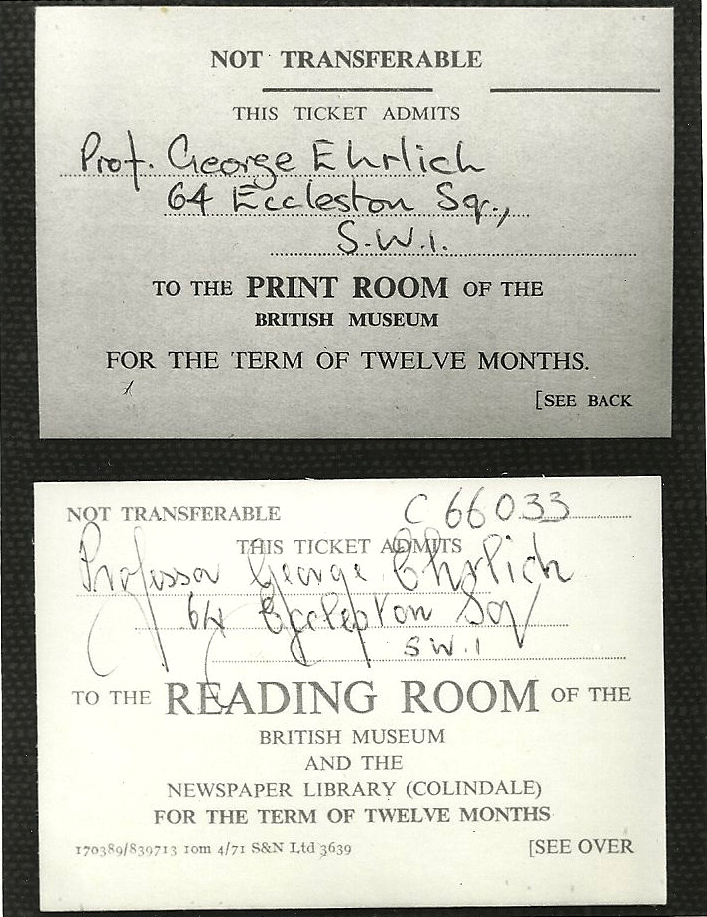 NOT TRANSFERABLE
THIS TICKET ADMITS
Prof. George Ehrlich
64 Eccleston Sq.,
S.W.1.
TO THE PRINT ROOM OF THE
BRITISH MUSEUM
FOR THE TERM OF TWELVE MONTHS.
[SEE BACK
NOT TRANSFERABLE C 66033
THIS TICKET ADMITS
Professor George Ehrlich
64 Eccleston Sq
S W . 1
TO THE READING ROOM OF THE
BRITISH MUSEUM
AND THE
NEWSPAPER LIBRARY (COLINDALE)
FOR THE TERM OF TWELVE MONTHS
170389/839713 10m 4/71 S&N Ltd 3639 [SEE OVER